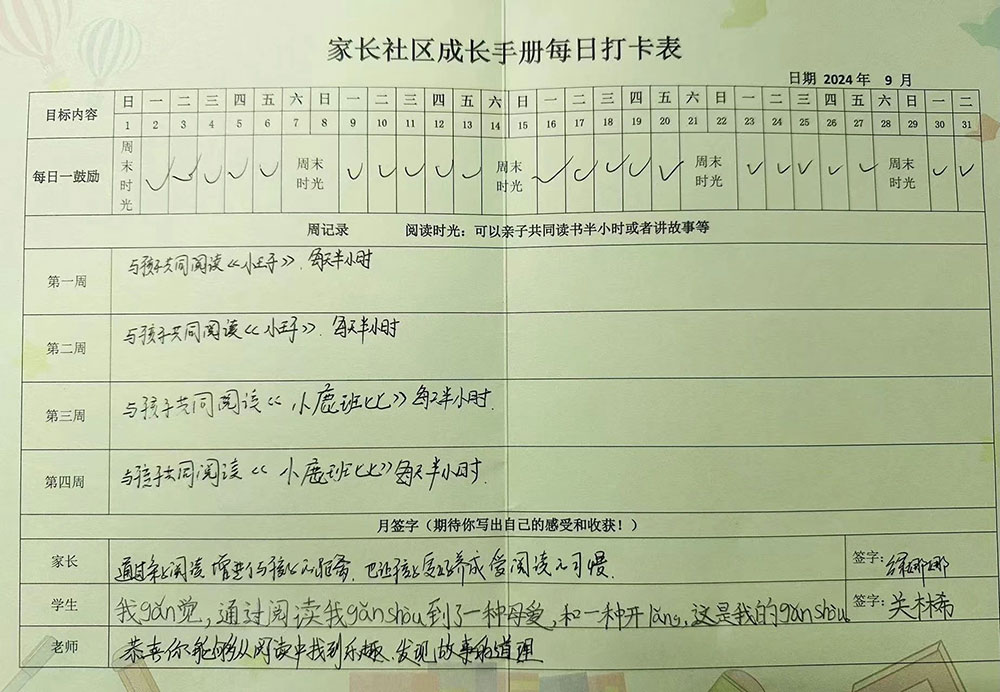 家长社区成长手册每日打卡表
日期 2024年 9月
目标内容 日 一 二 三 四 五 六 日 一 二 三 四 五 六 日 一 二 三 四 五 六 日 一 二 三 四 五 六 日 一 二
1 2 3 4 5 6 7 8 9 10 11 12 13 14 15 16 17 18 19 20 21 22 23 24 25 26 27 28 29 30 31
每日一鼓励 周末时光 周末时光 周末时光 周末时光 周末时光
周记录 阅读时光：可以亲子共同读书半小时或者讲故事等
第一周 与孩子共同阅读《小王子》. 每天半小时
第二周 与孩子共同阅读《小王子》. 每天半小时
第三周 与孩子共同阅读《小鹿班比》每天半小时.
第四周 与孩子共同阅读《小鹿班比》每天半小时.
月签字（期待你写出自己的感受和收获！）
家长 通过亲子阅读 增进了与孩子的距离. 也让孩子更好养成爱阅读的习惯. 签字:
学生 我gǎn觉，通过阅读我gǎn shòu到了一种母爱，和一种开lǎng，这是我的gǎn shòu 签字: 关林希
老师 恭喜你能够从阅读中找到乐趣.发现故事的道理